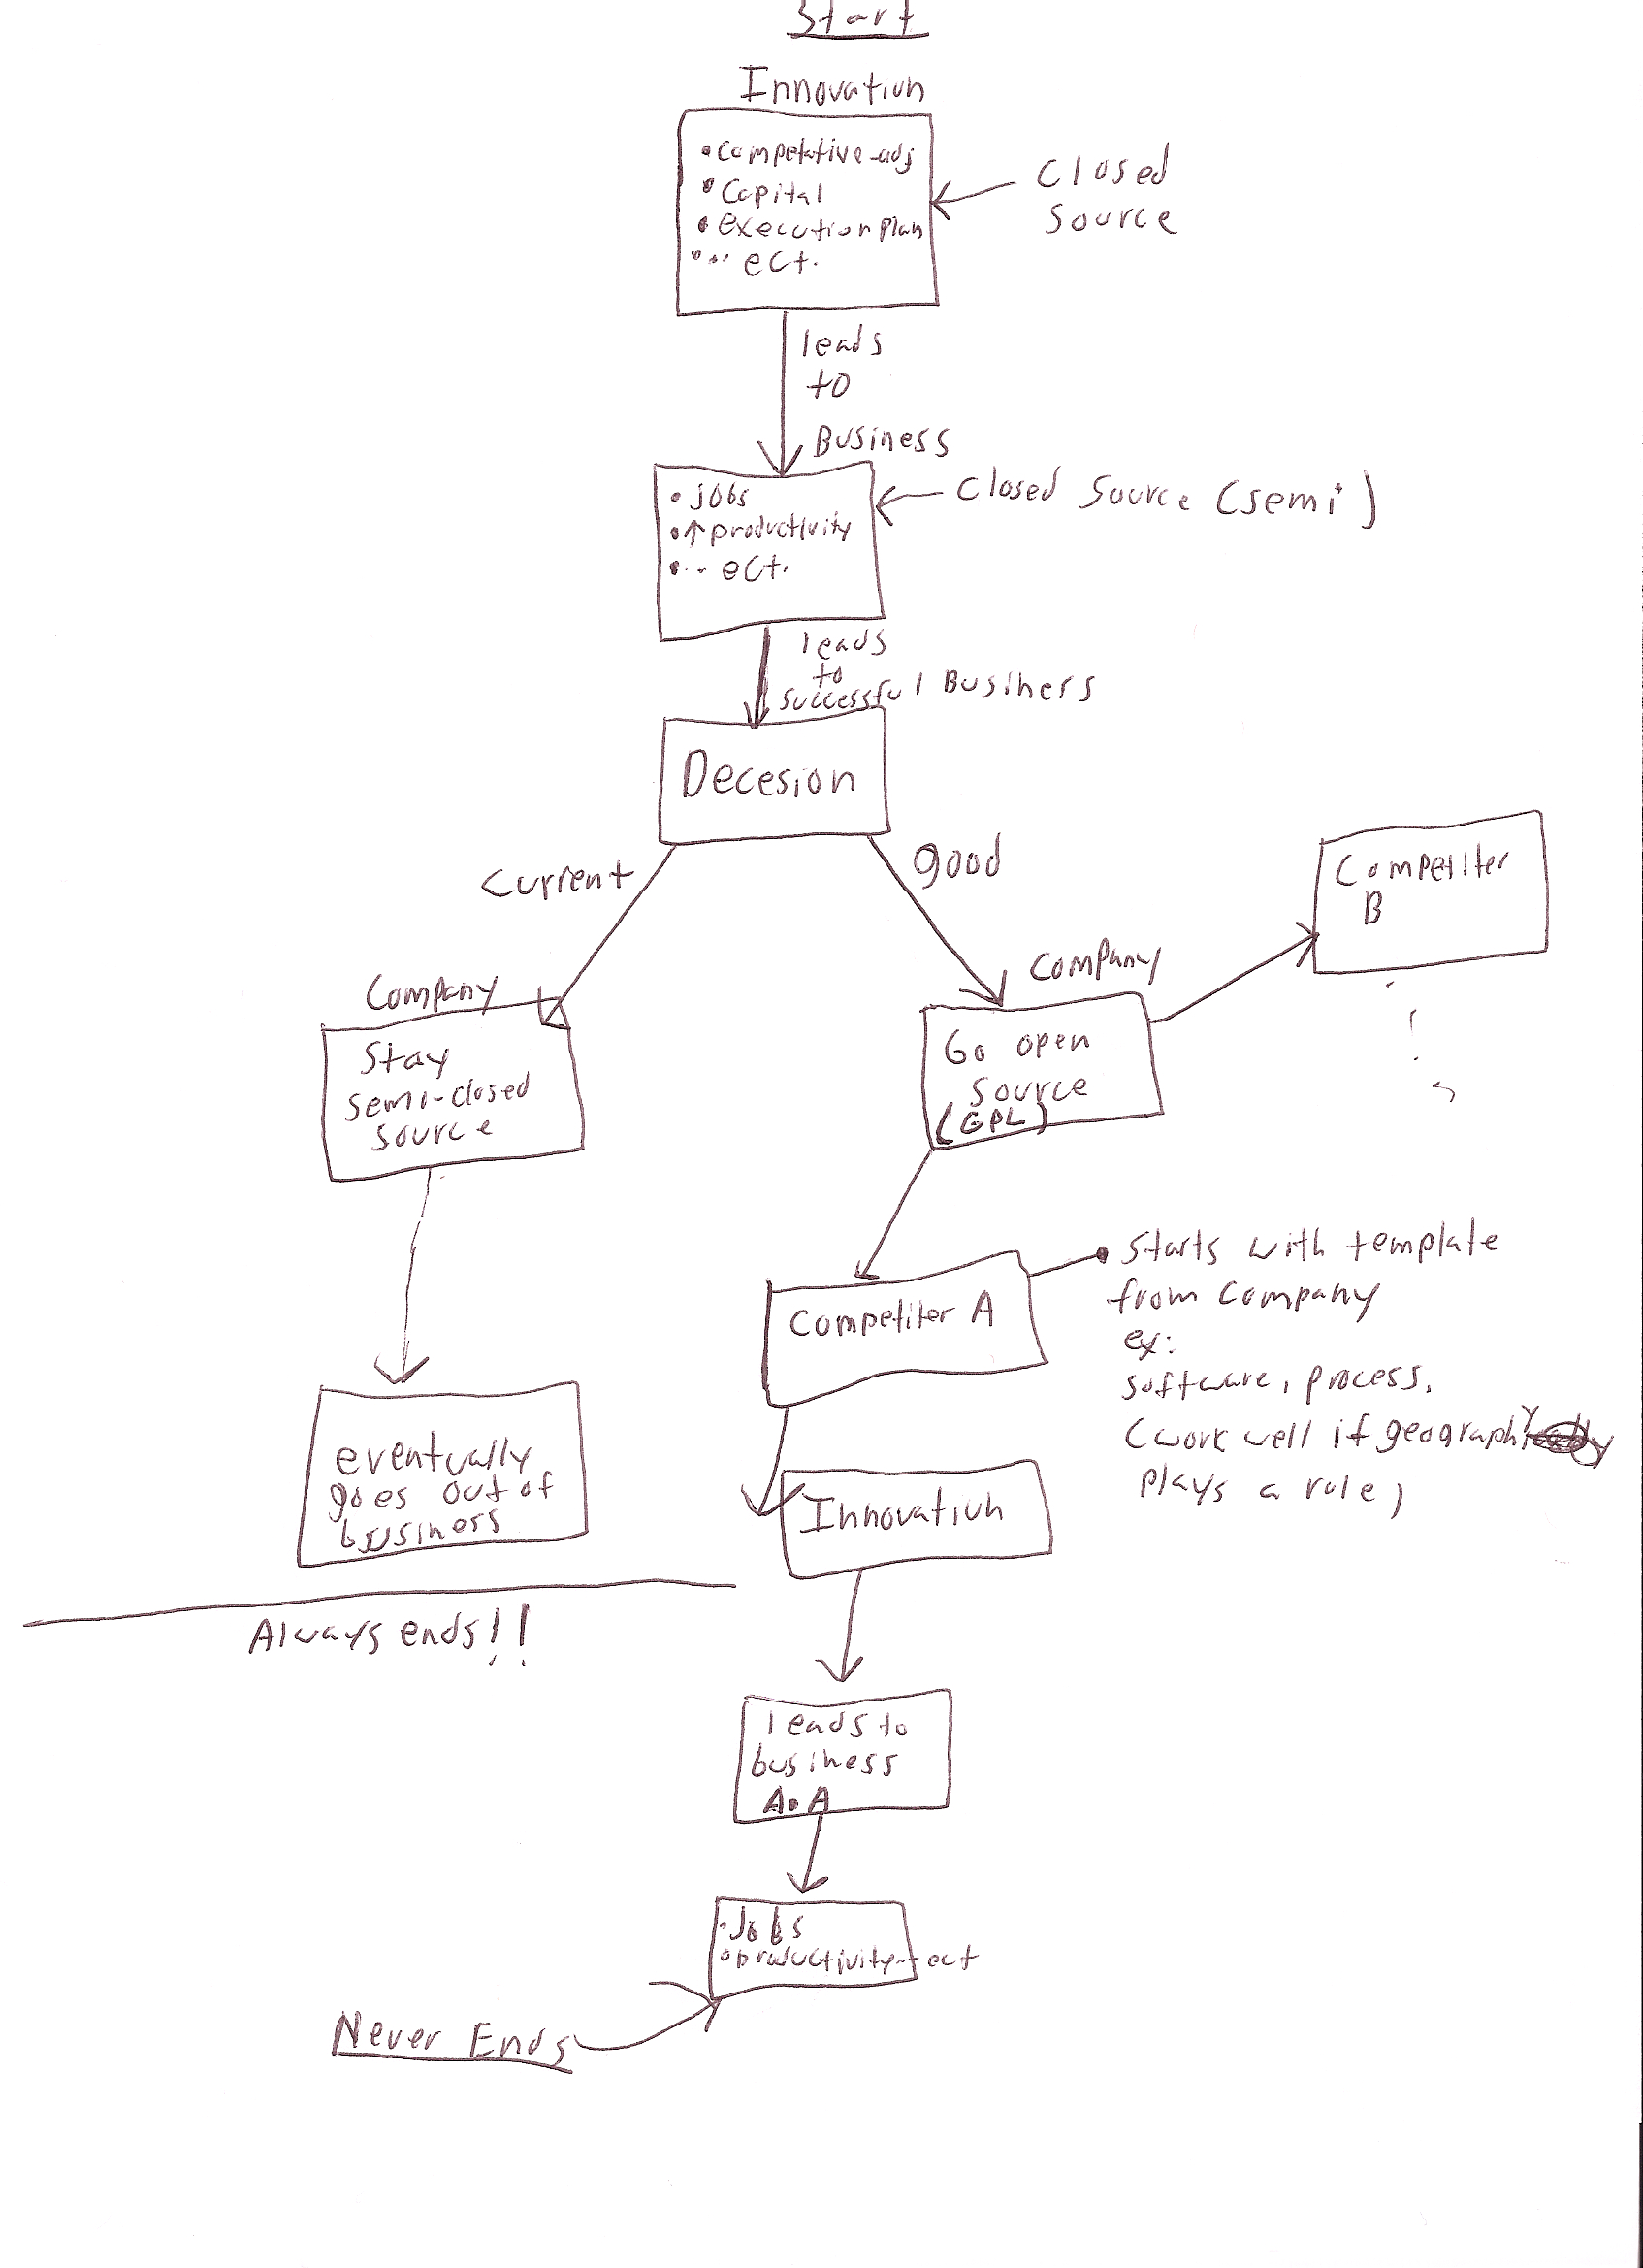 Start
Innovation
• Competative adj
• Capital
• execution plan
• ... ect.
Closed
Source
leads
to
Business
• jobs
• ↑ productivity
• ... ect.
Closed Source (semi)
leads
to
successful Business
Decesion
current
good
Competiter
B
Company
Stay
semi-closed
source
Company
Go open
source
(GPL)
Competiter A
• Starts with template
from company
ex:
software, process,
(work well if geography
plays a role)
eventually
goes out of
business
Innovation
Always ends!!
leads to
business
A.A
• Jobs
• productivity - ect
Never Ends